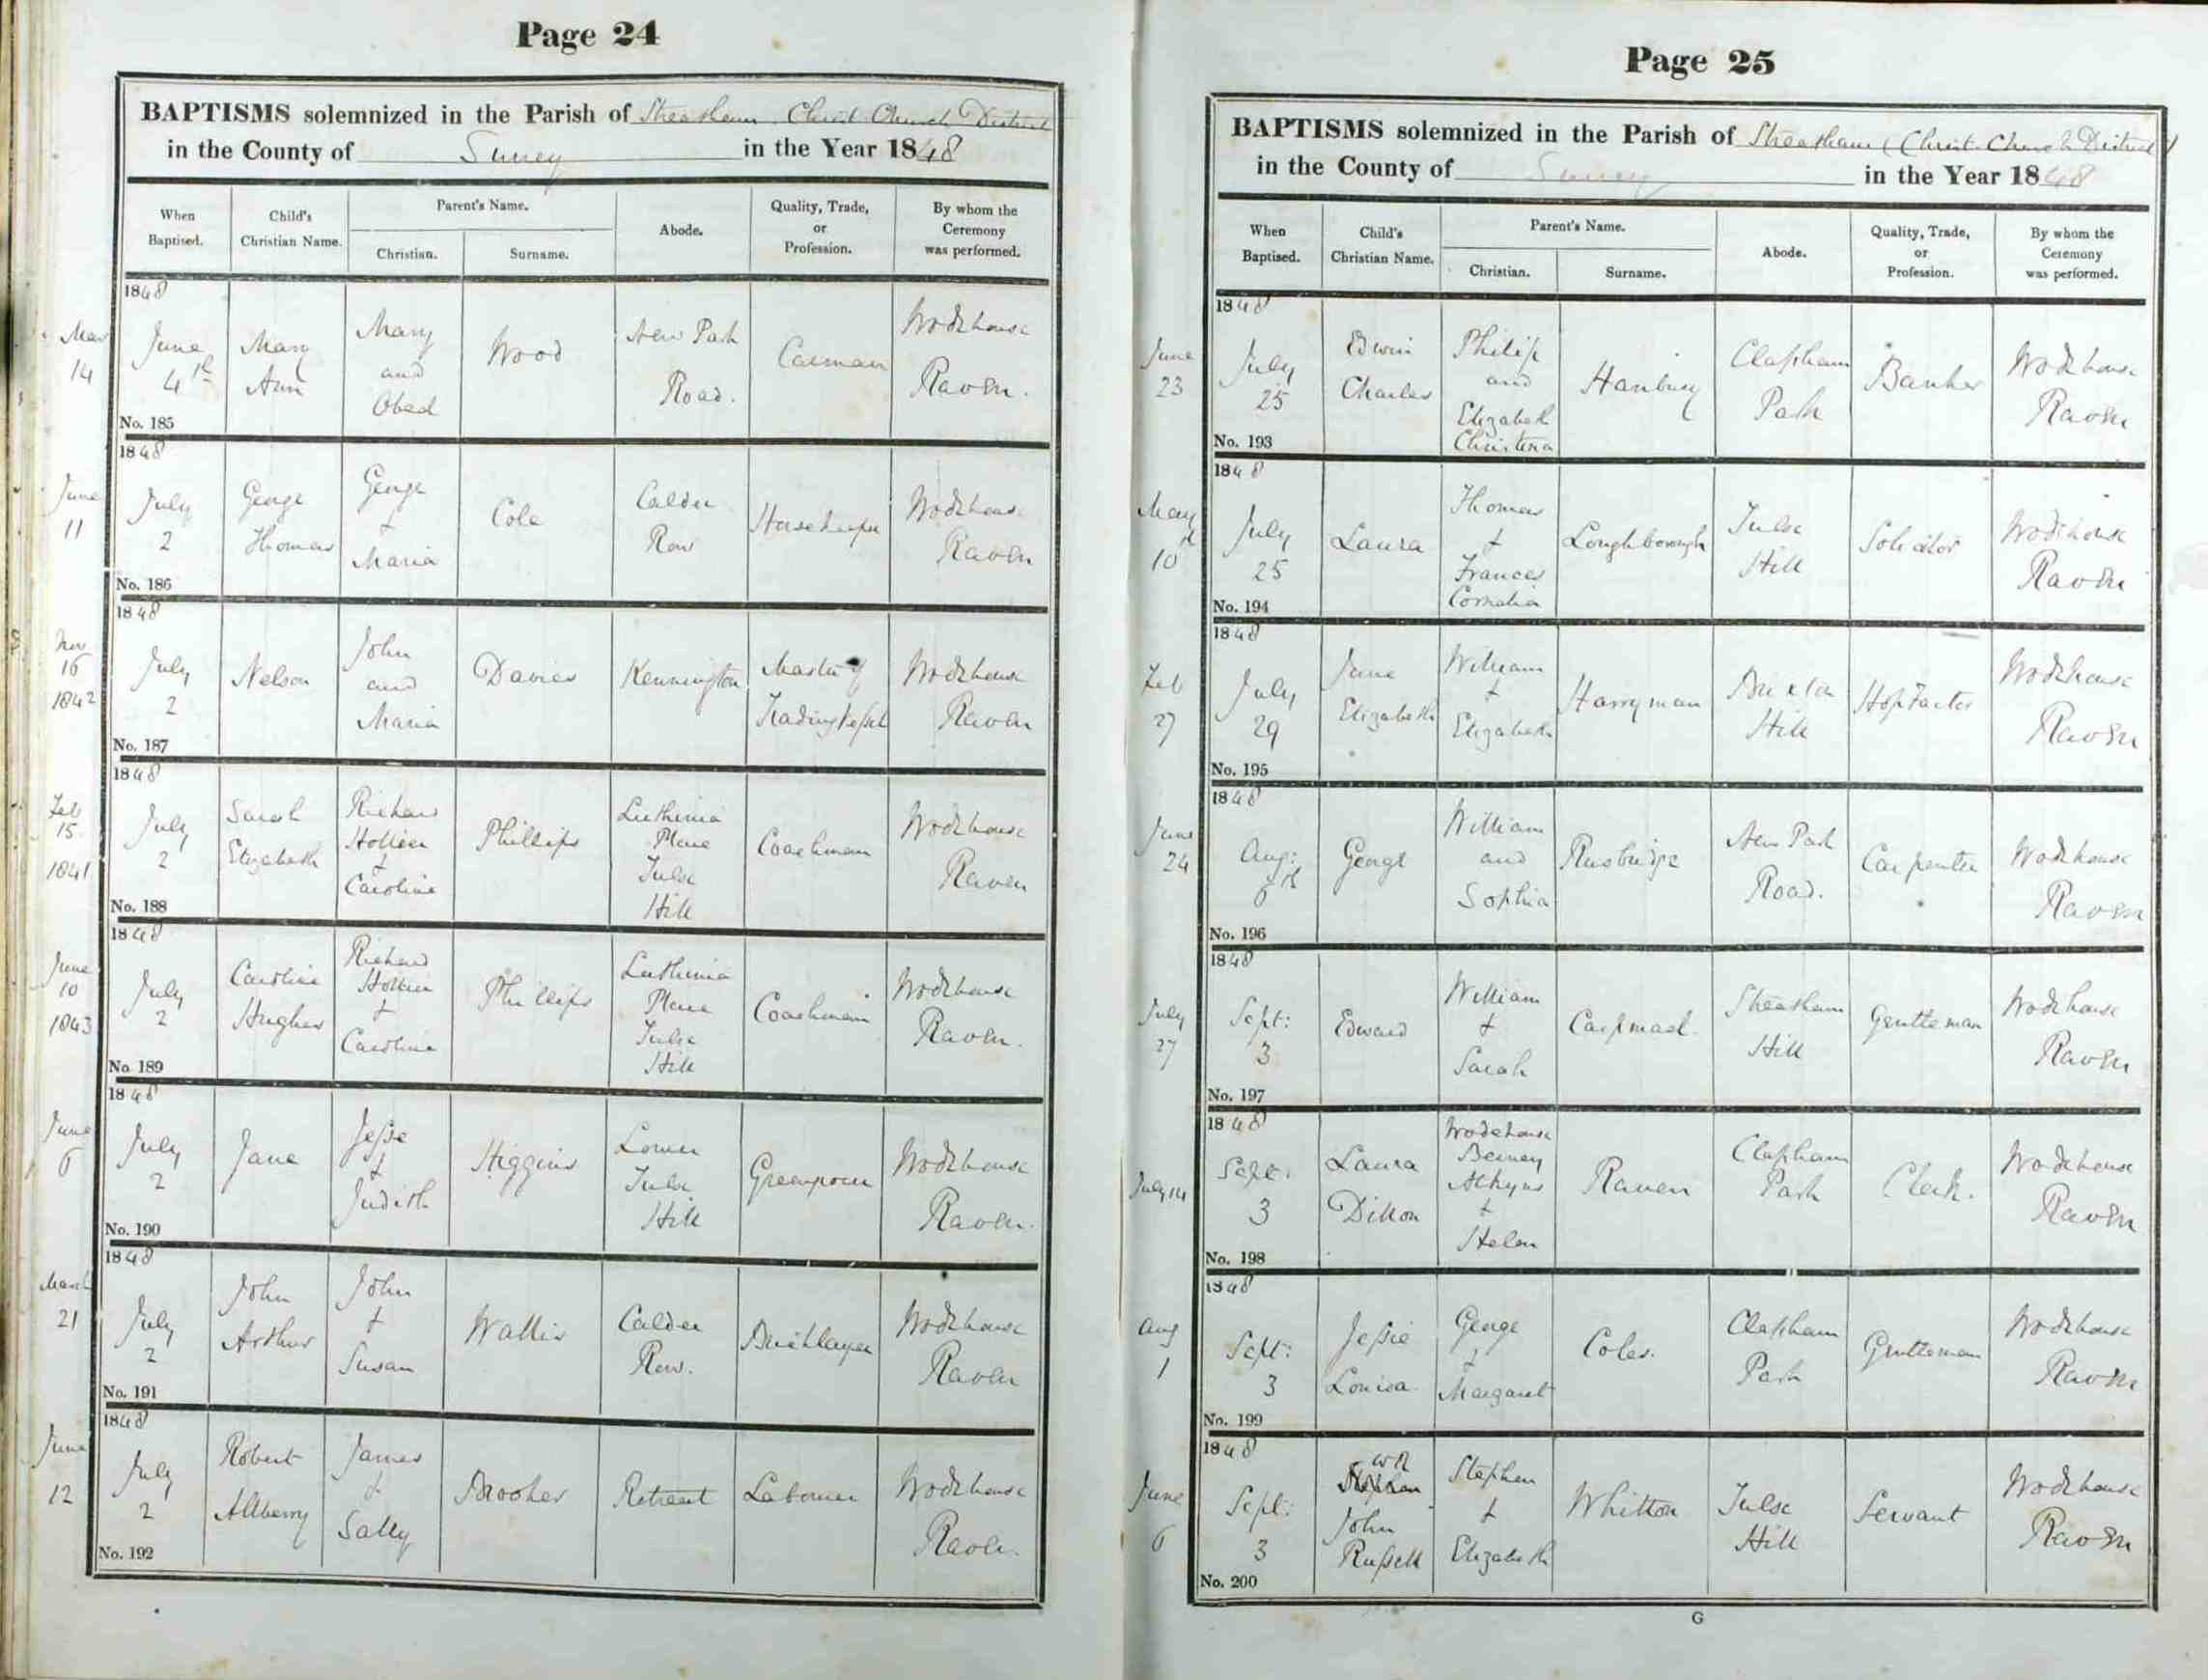 Page 24
BAPTISMS solemnized in the Parish of Streatham Christ Church District
in the County of Surrey in the Year 1848
When Baptised. Child's Christian Name. Parent's Name. Christian. Surname. Abode. Quality, Trade, or Profession. By whom the Ceremony was performed.
1848
May 14 June 4th Mary Ann Mary and Obed Wood New Park Road. Carman Wodehouse Raven.
No. 185
1848
June 11 July 2 George Thomas George + Maria Cole Calder Row Horsekeeper Wodehouse Raven
No. 186
1848
Nov 16 1842 July 2 Nelson John and Maria Davies Kennington Master of Trading Vessel Wodehouse Raven
No. 187
1848
Feb 15 1841 July 2 Sarah Elizabeth Richard Hollier + Caroline Phillips Place Tulse Hill Coachman Wodehouse Raven
No. 188
1848
June 10 1843 July 2 Caroline Hughes Richard Hollier + Caroline Phillips Place Tulse Hill Coachman Wodehouse Raven.
No 189
1848
June 6 July 2 Jane Jesse + Judith Higgins Lower Tulse Hill Greengrocer Wodehouse Raven.
No. 190
1848
March 21 July 2 John Arthur John + Susan Wallis Calder Row. Bricklayer Wodehouse Raven
No. 191
1848
June 12 July 2 Robert Allberry James + Sally Brooker Retreat Labourer Wodehouse Raven.
No. 192
Page 25
BAPTISMS solemnized in the Parish of Streatham (Christ Church District)
in the County of Surrey in the Year 1848
When Baptised. Child's Christian Name. Parent's Name. Christian. Surname. Abode. Quality, Trade, or Profession. By whom the Ceremony was performed.
1848
June 23 July 25 Edwin Charles Philip and Elizabeth Christina Hanbury Clapham Park Banker Wodehouse Raven
No. 193
1848
May 10 July 25 Laura Thomas + Frances Cornelia Loughborough Tulse Hill Solicitor Wodehouse Raven
No. 194
1848
Feb 27 July 29 Jane Elizabeth William + Elizabeth Harryman Brixton Hill Hop Factor Wodehouse Raven
No. 195
1848
June 24 Aug: 6th George William and Sophia Rusbridge New Park Road. Carpenter Wodehouse Raven
No. 196
1848
July 27 Sept: 3 Edward William + Sarah Carpmael Streatham Hill Gentleman Wodehouse Raven
No. 197
1848
July 14 Sept: 3 Laura Dillon Wodehouse Berney Atkyns + Helen Raven Clapham Park Clerk. Wodehouse Raven
No. 198
1848
Aug 1 Sept: 3 Jessie Louisa George + Margaret Coles. Clapham Park Gentleman Wodehouse Raven
No. 199
1848
June 6 Sept: 3 WR John Russell Stephen + Elizabeth Whitton Tulse Hill Servant Wodehouse Raven
No. 200
G